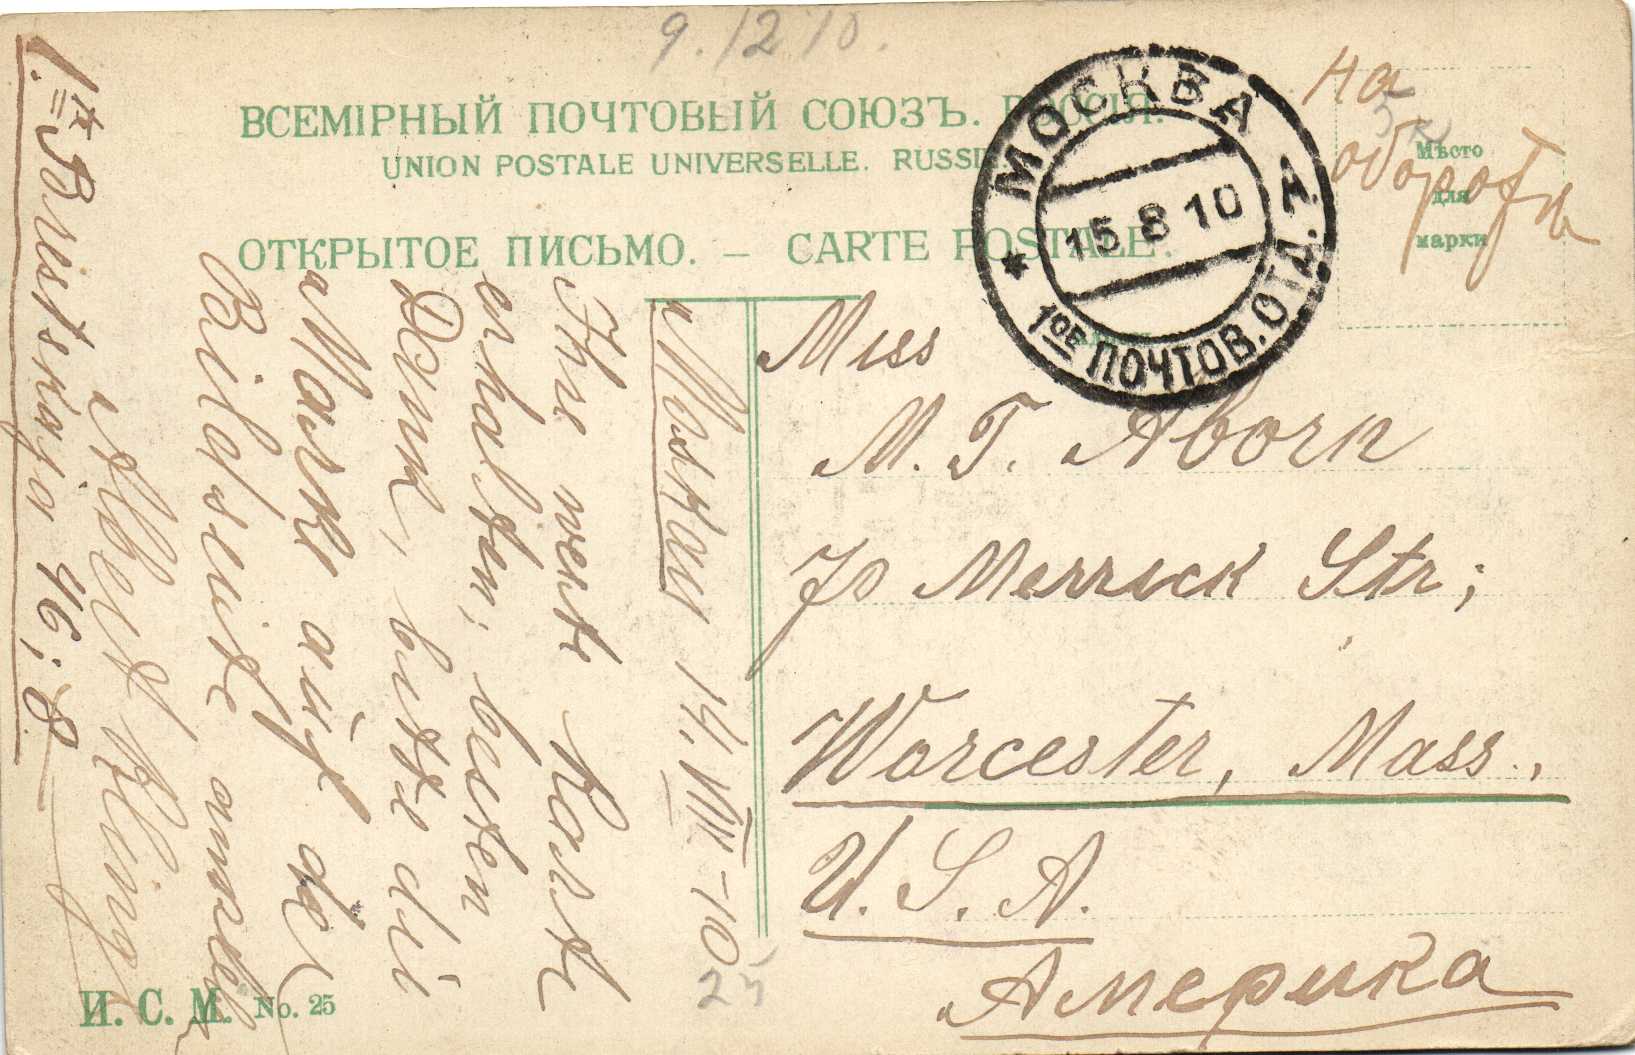 9.12.10.
ВСЕМІРНЫЙ ПОЧТОВЫЙ СОЮЗЪ. РОССІЯ.
UNION POSTALE UNIVERSELLE. RUSSIE.
ОТКРЫТОЕ ПИСЬМО. — CARTE POSTALE.
МОСКВА
15 8 10
* 1ОЕ ПОЧТОВ. ОТД. *
на
оборотѣ
5
Мѣсто
для
марки
Miss
M. T. Aborn
70 Merrick Str;
Worcester, Mass.,
U. S. A.
Америка
Moskau 14.VIII-10
25
Ihre werte Karte
erhalten, besten
Dank, bitte die
Marke auf der
Bildseite
Albert
Brestskaja 46; 8
И. С. М. No. 25